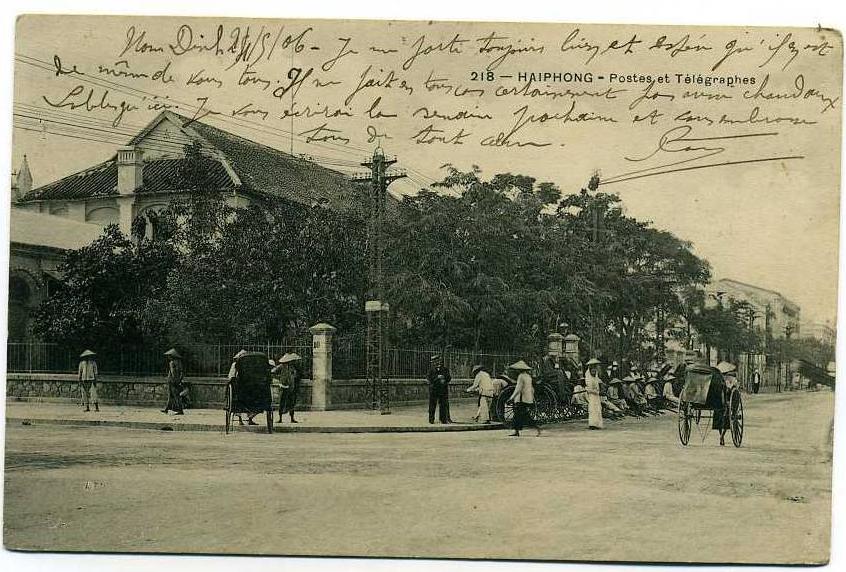 Nam Dinh 24/5/06 - Je me porte toujours bien et espère qu'il en est
de même de vous tous. Il ne fait en tous cas certainement pas aussi chaud aux
Sables qu'ici. Je vous écrirai la semaine prochaine et vous embrasse
tous de tout cœur.
218 — HAIPHONG - Postes et Télégraphes